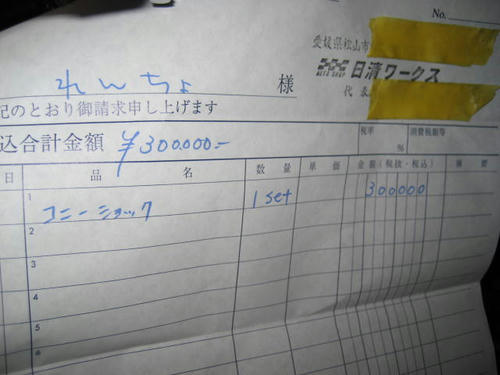 No.
愛媛県松山市
日清ワークス
代表
れんちょ 様
記のとおり御請求申し上げます
込合計金額 ¥300000-
税率 % 消費税額等
日 品名 数量 単価 金額(税抜・税込) 摘要
1 コニーショック 1 set 300000
2
3
4
5
6